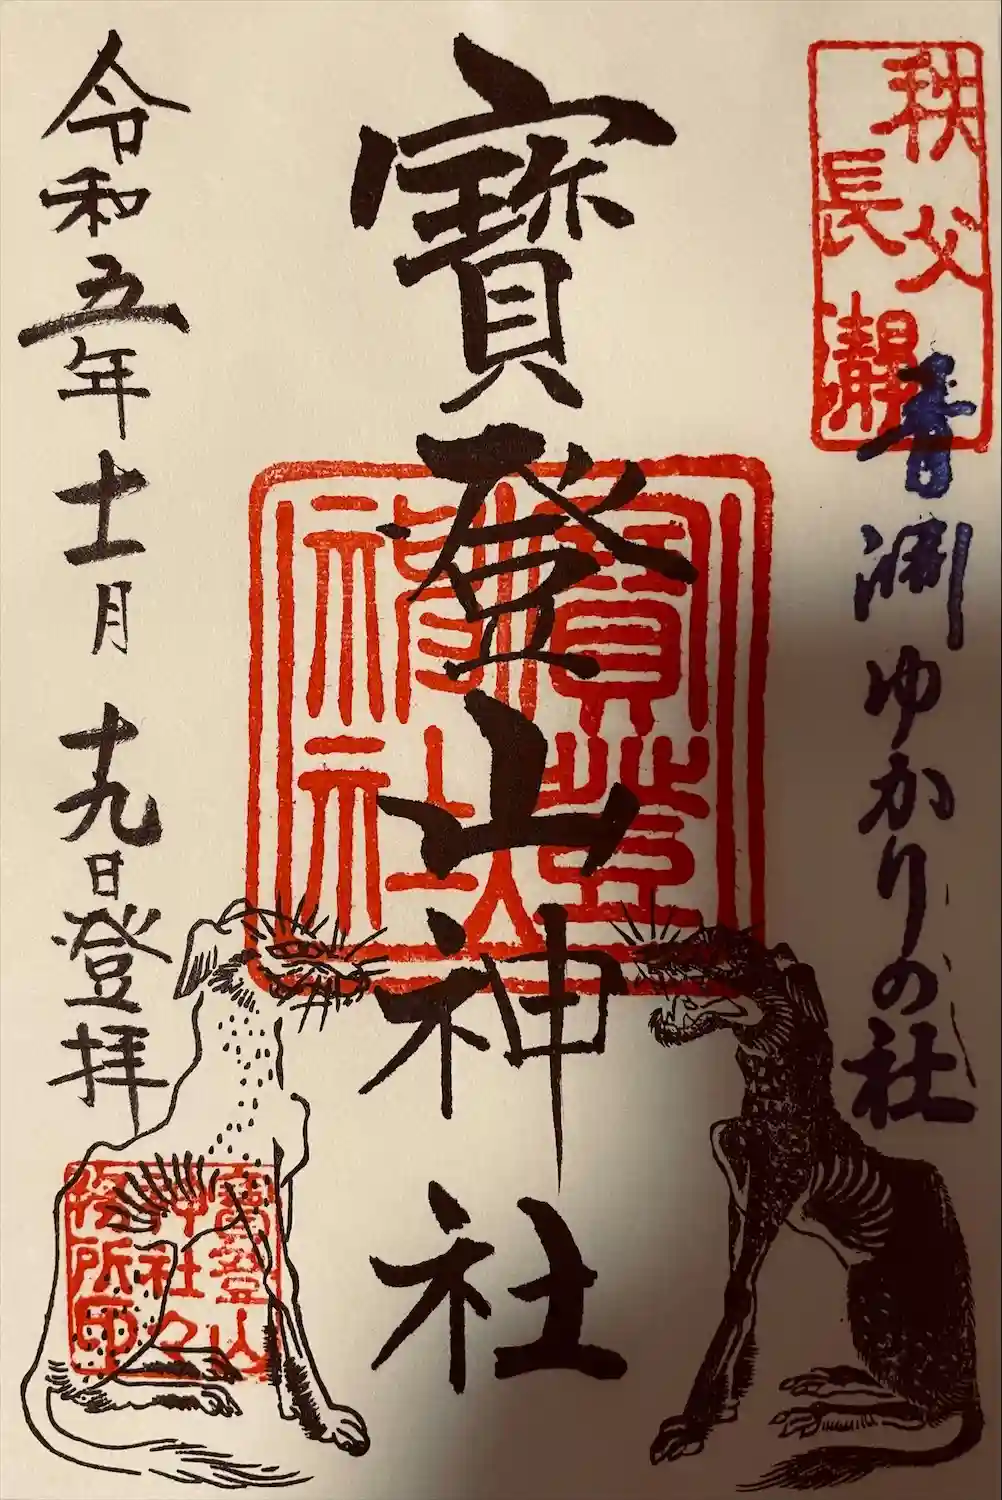 秩父
長瀞
青淵ゆかりの社
寶登山神社
寶登山神社
令和五年十一月十九日登拝
寶登山
神社々
務所印